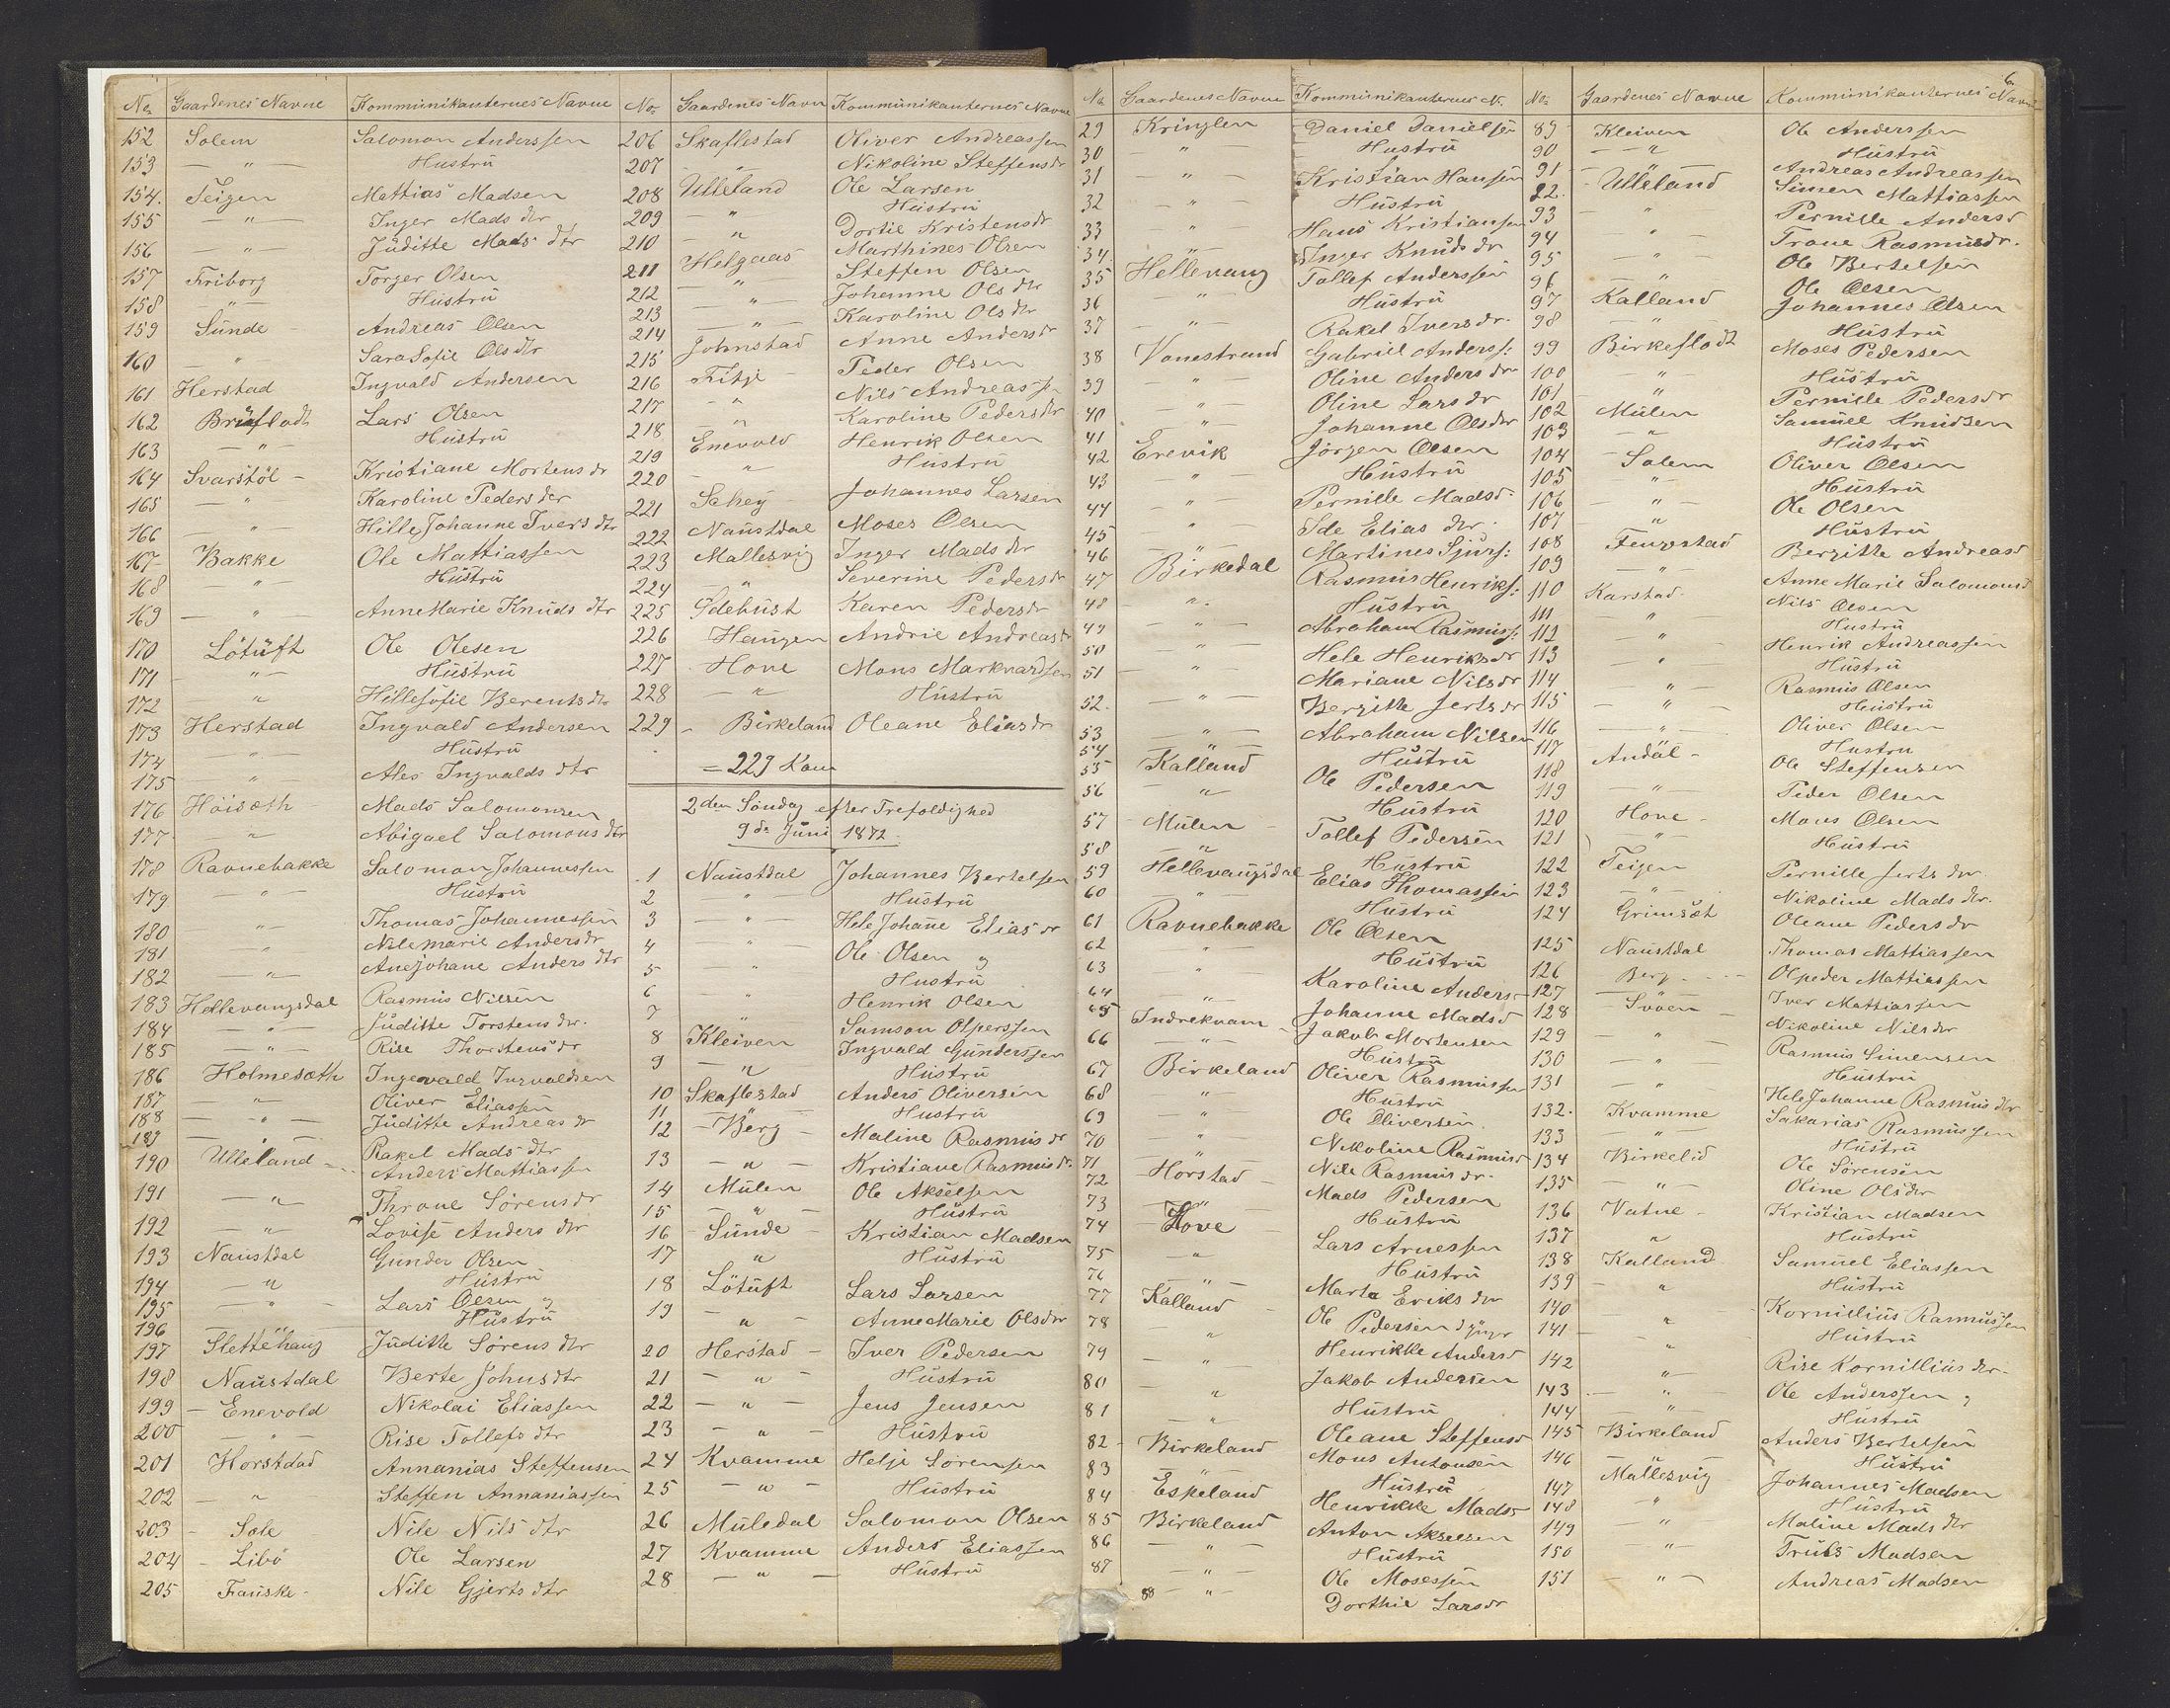 No. Gaardenes Navne Kommunikanternes Navne
152 Solem Salomon Anderssen
153 — " — Hustrü
154. Teigen Mattias Madsen
155 — " — Inger Mads dtr
156 — " — Jüditte Mads dtr
157 Friborg Torger Olsen
158 — " — Hüstrü
159 Sünde - Andreas Olsen
160 " Sara Sofie Ols dtr
161 Herstad Ingvald Andersen
162 Brüflodt Lars Olsen
163 — " — Hüstrü
164 Svarstöl - Kristiane Mortens dr
165 — " Karoline Peders dtr
166 — " — Hille Johanne Ivers dtr
167 Bakke Ole Mattiassen
168 " Hüstrü
169 — " — Anne Marie Knüds dtr
170 Lötüft Ole Olesen
171 — " — Hüstrü
172 " Hillesofie Berents dtr
173 Herstad Ingvald Andersen
174 — " — Hüstrü
175 — " — Ales Ingvalds dtr
176 Höisæth Mads Salomonsen
177 — " — Abigael Salomons dtr
178 Ravnebakke Salomon Johannessen
179 — " — Hüstrü
180 " — Thomas Johannessen
181 " Nilemarie Anders dr
182 " — Anejohane Anders dtr
183 Hellevangsdal Rasmus Nilsen
184 — " — Jüditte Torstens dtr.
185 — " — Rise Thorstens dr
186 Holmesæth Ingevald Ingvaldsen
187 — " — Oliver Eliassen
188 — " — Jüditte Andreas dr
189 — " — Rakel Mads dtr
190 Ulleland Anders Mattiassen
191 — " — Throne Sörens dr
192 — " — Lovise Anders dtr
193 Naustdal Gunder Olsen
194 — " Hüstrü
195 — " — Lars Olsen og
196 — " — Hüstrü
197 Slettehaug Jüditte Sörens dtr
198 Naüstdal Berte Johns dtr
199 - Enevold Nikolai Eliassen
200 — " — Rise Tollefs dtr
201 Horstdad Annanias Steffensen
202 — " Steffen Annaniassen
203 - Sole Nile Nils dtr
204 - Libö Ole Larsen
205 Faüske - Nile Gjerts dtr
No. Gaardenes Navn Kommünikanternes Navne
206 Skaflestad Oliver Andreassen
207 — " — Nikoline Steffensdr
208 Ulleland Ole Larsen
209 — " Hüstrü
210 — " Dortie Kristensdr
211 Helgaas Marthines Olsen
212 — " Steffen Olsen
213 " — Johanne Ols dtr
214 — " — Karoline Ols dtr
215 Johnstad Anne Andersdr
216 Fitje - Peder Olsen
217 - " Nils Andreassen
218 " Karoline Pedersdtr
219 Enevold Henrik Olsen
220 — " Hüstrü
221 Sakey Johannes Larsen
222 Naüstdal Moses Olsen
223 Mallesvig Inger Mads dtr
224 — " Severine Pedersdr
225 Idehüst Karen Pedersdr
226 Haügen Andrie Andreasdr
227 Hove Mons Markvardsen
228 — " Hüstrü
229 - Birkeland Oleane Eliasdr
= 229 Kom
2den Söndag efter Trefoldighed
9de Jüni 1872.
1 Naüstdal Johannes Bertelsen
2 — " — Hüstrü
3 — " — Hele Johane Elias dr
4 — " — Ole Olsen og
5 " Hüstrü
6 " Henrik Olsen
7 " Samson Olperssen
8 Kleiven Ingvald Günderssen
9 — " Hüstrü
10 Skaflestad Anders Oliversen
11 — " — Hüstrü
12 - Berg - Maline Rasmus dr
13 — " — Kristiane Rasmusdr.
14 Mülen Ole Akselsen
15 — " — Hüstrü
16 - Sünde - Kristian Madsen
17 " Hüstrü
18 Lötüft Lars Larsen
19 — " Anne Marie Olsdtr
20 Herstad - Iver Pedersen
21 — " — Hüstrü
22 — " — Jens Jensen
23 — " — Hüstrü
24 Kvamme Helje Sörensen
25 — " — Hüstrü
26 Müledal Salomon Olsen
27 Kvamme Anders Eliassen
28 — " — Hüstrü
No Gaardenes Navne Kommünikanternes N.
29 Kringlen Daniel Danielsen
30 " — Hustrü
31 — " — Kristian Hansen
32 — " — Hüstrü
33 — " — Hans Kristiansen
34. — " — Inger Knüds dr
35 Hellevang Tollef Anderssen
36 " Hüstrü
37 — " — Rakel Ivers dr.
38 Vonestrand Gabriel Anderss:
39 — " — Oline Anders dr
40 " — Oline Lars dr
41 — " — Johanne Ols dtr
42 Erevik Jörgen Olsen
43 — " — Hüstrü
44 " — Pernille Madsd:
45 " Ide Elias dtr.
46 — " — Martines Sjürs:
47 Birkedal Rasmus Henriks:
48 — ". Hüstrü
49 — " — Abraham Rasmuss:
50 — " — Hele Henriksdr
51 — " Mariane Nilsdr
52. — " — Bergitte Jerts dr
53 — " — Abraham Nilsen
54 — " — Hüstrü
55 Kalland Ole Pedersen
56 — " Hüstrü
57 Mülen - Tollef Pedersen
58 — " Hüstrü
59 Hellevangsdal Elias Thomassen
60 " Hüstrü
61 Ravnebakke Ole Olsen
62 " — Hüstrü
63 " Karoline Anders
64 — " — Johanne Madsd
65 Indrekvam - Jakob Mortensen
66 — " — Hüstrü
67 Birkeland Oliver Rasmussen
68 " — Hüstrü
69 — " Ole Oliversen
70 — " Nikoline Rasmusd
71 — " — Nile Rasmus dr.
72 Horstad - Mads Pedersen
73 — " — Hüstrü
74 Hove Lars Arnessen
75 " Hüstrü
76 — " — Marta Eriks dtr
77 Kalland - Ole Pedersen
78 " Henrikke Andersd
79 — " — Jakob Andersen
80 " Hüstrü
81 — " Oleane Steffensd
82 - Birkeland Mons Antonsen
83 — " — Hüstrü
84 Espeland Henrikke Madsd
85 Birkeland Anton Akselsen
86 — " — Hüstrü
87 — " — Ole Mosessen
88 — " Dorthie Larsdr
6.
No. Gaardenes Navne Kommünikanternes Navne
89 Kleiven Ole Anderssen
90 — " Hüstrü
91 — " — Andreas Andreassen
22. - Ulleland Simen Mattiassen
93 — " Pernille Andersd
94 — " — Trone Rasmüsdr.
95 — " — Ole Bertelsen
96 — " — Ole Olsen
97 Kalland Johannes Olsen
98 — " — Hüstrü
99 Birkeflodt Moses Pedersen
100 — " — Hüstrü
101 — " — Pernille Pedersdr
102 Mülen Samüel Knüdsen
103 — " Hüstrü
104 - Solem Oliver Olsen
105 " — Hüstrü
106 — " — Ole Olsen
107 " Hüstrü
108 Fengestad Bergitte Andreasd
109 — " — Anne Marie Salomonsd
110 Karstad. Nils Olsen
111 " — Hustrü
112 — " Henrik Andreassen
113 — " Hüstrü
114 " — Rasmus Olsen
115 — " — Hüstrü
116 — " — Oliver Olsen
117 Andål - Hustru
118 Ole Steffensen
119 — " — Peder Olsen
120 Hove - Mons Olsen
121 — " — Hüstrü
122 Teigen Pernille Jerts dtr
123 — " — Nikoline Mads dtr.
124 Grimsæt Oleane Peders dr
125 Naüstdal Thomas Mattiassen
126 Berg Olpeder Mattiassen
127 — Iver Mattiassen
128 Svoen - Nikoline Nils dtr
129 — " — Rasmus Simensen
130 — " Hüstrü
131 — " — Hele Johanne Rasmüs dtr
132. Kvamme Sakarias Rasmüssen
133 — " — Hüstrü
134 Birkelid Ole Sörensen
135 — " — Oline Ols dtr
136 Vatne - Kristian Madsen
137 " Hüstrü
138 Kalland Samüel Eliassen
139 — " Hüstrü
140 " Kornillius Rasmüssen
141 — " Hüstrü
142 — " — Rise Kornillius dtr.
143 — " — Ole Anderssen og
144 — " — Hüstrü
145 Birkeland Anders Bertelsen
146 Hüstrü
147 Mallesvig Johannes Madsen
148 — " Hüstrü
149 — " — Maline Mads dtr
150 " — Trüls Madsen
151 — " — Andreas Madsen